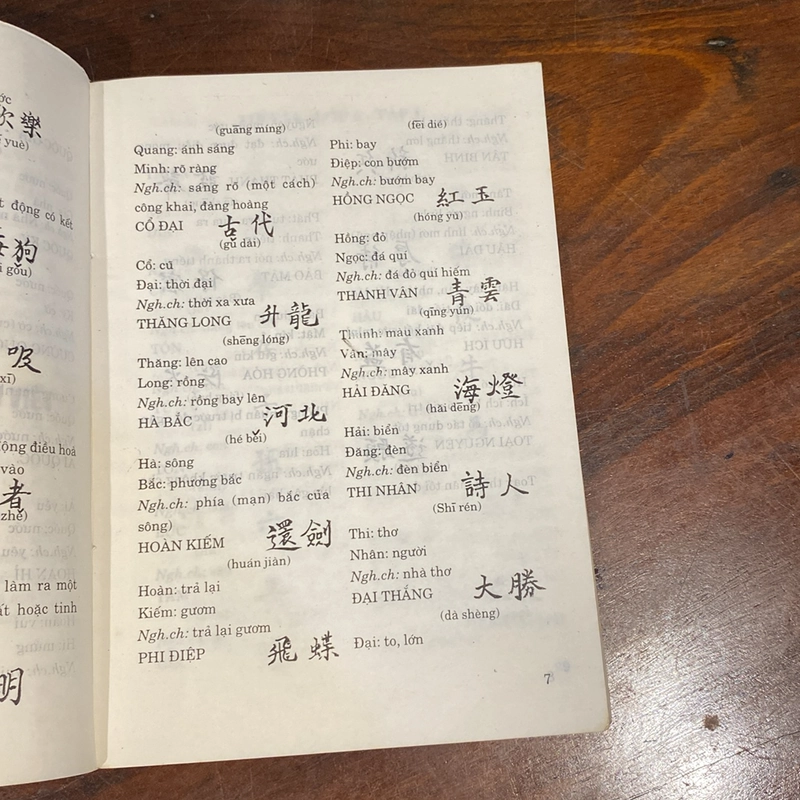 ớc
欣樂
yuè)
t động có kết
海狗
i gǒu)
吸
xī)
động điều hoà
vào
者
zhě)
làm ra một
ất hoặc tinh
明
(guāng míng)
Quang: ánh sáng
Minh: rõ ràng
Ngh.ch: sáng rõ (một cách)
công khai, đàng hoàng
CỔ ĐẠI 古代
(gǔ dài)
Cổ: cũ
Đại: thời đại
Ngh.ch: thời xa xưa
THĂNG LONG 升龍
(shēng lóng)
Thăng: lên cao
Long: rồng
Ngh.ch: rồng bay lên
HÀ BẮC 河北
(hé běi)
Hà: sông
Bắc: phương bắc
Ngh.ch: phía (mạn) bắc của
sông)
HOÀN KIẾM 還劍
(huán jiàn)
Hoàn: trả lại
Kiếm: gươm
Ngh.ch: trả lại gươm
PHI ĐIỆP 飛蝶
(fēi dié)
Phi: bay
Điệp: con bướm
Ngh.ch: bướm bay
HỒNG NGỌC 紅玉
(hóng yù)
Hồng: đỏ
Ngọc: đá quí
Ngh.ch: đá đỏ quí hiếm
THANH VÂN 青雲
(qīng yún)
Thanh: màu xanh
Vân: mây
Ngh.ch: mây xanh
HẢI ĐĂNG 海燈
(hǎi dēng)
Hải: biển
Đăng: đèn
Ngh.ch: đèn biển
THI NHÂN 詩人
(Shī rén)
Thi: thơ
Nhân: người
Ngh.ch: nhà thơ
ĐẠI THẮNG 大勝
(dà shèng)
Đại: to, lớn
7